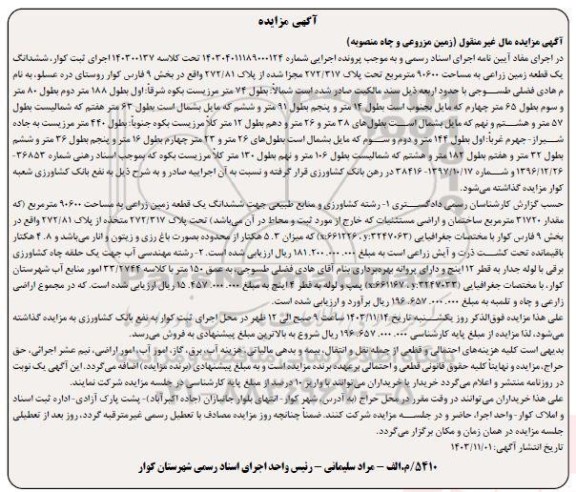 آگهی مزایده
آگهی مزایده مال غیر منقول (زمین مزروعی و چاه منصوبه)
در اجرای مفاد آیین نامه اجرای اسناد رسمی و به موجب پرونده اجرایی شماره ۱۴۰۳۰۴۰۱۱۱۸۹۰۰۰۱۲۴ تحت کلاسه ۱۴۰۳۰۰۱۳۷ اجرای ثبت کوار، ششدانگ
یک قطعه زمین زراعی به مساحت ۹۰۶۰۰ مترمربع تحت پلاک ۲۷۲/۳۱۷ مجزا شده از پلاک ۲۷۲/۸۱ واقع در بخش ۹ فارس کوار روستای دره عسلو، به نام
م هادی فضلی طسوجی با حدود اربعه ذیل سند مالکیت صادر شده است: شمالاً: بطول ۷۴ متر مرزیست بکوه شرقاً: اول بطول ۱۸۸ متر دوم بطول ۸۰ متر
و سوم بطول ۶۵ متر چهارم که مایل بجنوب است بطول ۱۴ متر و پنجم بطول ۹۱ متر و ششم که مایل بشمال است بطول ۶۳ متر هفتم که شمالیست بطول
۵۷ متر و هشتم و نهم که مایل بشمال است بطول‌های ۳۸ متر و ۲۶ متر و دهم بطول ۱۲ متر کلاً مرزیست بکوه جنوباً: بطول ۴۴۰ متر مرزیست به جاده
شیراز- جهرم غرباً: اول بطول ۱۴۴ متر و دوم و سوم که مایل بشمال است بطول‌های ۲۶ متر و ۲۳ متر چهارم بطول ۱۶ متر و پنجم بطول ۳۶ متر و ششم
بطول ۳۲ متر و هفتم بطول ۱۸۴ متر و هشتم که شمالیست بطول ۱۰۶ متر و نهم بطول ۱۳۰ متر کلاً مرزیست بکوه که بموجب اسناد رهنی شماره ۳۶۸۵۳-
۱۳۹۶/۱۲/۲۶ و شماره ۳۸۴۱۶-۱۳۹۷/۱۰/۱۷ در رهن بانک کشاورزی قرار گرفته و نسبت به آن اجراییه صادر و به شرح ذیل به نفع بانک کشاورزی شعبه
کوار مزایده گذاشته می‌شود.
حسب گزارش کارشناسان رسمی دادگستری ۱- رشته کشاورزی و منابع طبیعی جهت ششدانگ یک قطعه زمین زراعی به مساحت ۹۰۶۰۰ مترمربع (که
مقدار ۳۱۷۲۰ مترمربع ساختمان و اراضی مستثنیات که خارج از مورد ثبت و محاط در آن می‌باشد) تحت پلاک ۲۷۲/۳۱۷ متخذه از پلاک ۲۷۲/۸۱ واقع در
بخش ۹ فارس کوار با مختصات جغرافیایی (x:۶۶۱۲۲۶ ,y:۳۲۴۷۰۶۳) که میزان ۵.۳ هکتار از محدوده بصورت باغ رزی و زیتون و انار می‌باشد و ۸.۴ هکتار
باقیمانده تحت کشت ذرت و آیش زراعی است به مبلغ ۱۸۱.۲۰۰.۰۰۰.۰۰۰ ریال ارزیابی شده است. ۲- رشته مهندسی آب جهت یک حلقه چاه کشاورزی
برقی با لوله جدار به قطر ۱۲ اینچ و دارای پروانه بهره‌برداری بنام آقای هادی فضلی طسوجی، به عمق ۱۵۰ متر با کلاسه ۳۳/۲۷۴۴ امور منابع آب شهرستان
کوار، با مختصات جغرافیایی (x:۶۶۱۱۶۷ ,y:۳۲۴۷۰۲۳) پمپ و لوله به قطر ۴ اینچ به مبلغ ۱۵.۴۵۷.۰۰۰.۰۰۰ ریال ارزیابی شده است. که در مجموع اراضی
زارعی و چاه و تلمبه به مبلغ ۱۹۶.۶۵۷.۰۰۰.۰۰۰ ریال برآورد و ارزیابی شده است.
علی هذا مزایده فوق‌الذکر روز یکشنبه تاریخ ۱۴۰۳/۱۱/۱۴ ساعت ۹ صبح الی ۱۲ ظهر در محل اجرای ثبت کوار به نفع بانک کشاورزی به مزایده گذاشته
می‌شود، لذا مزایده از مبلغ پایه کارشناسی ۱۹۶.۶۵۷.۰۰۰.۰۰۰ ریال شروع به بالاترین مبلغ پیشنهادی به فروش می‌رسد.
بدیهی است کلیه هزینه‌های احتمالی و قطعی از جمله نقل و انتقال، بیمه و بدهی مالیاتی، هزینه آب، برق، گاز، امور آب، امور اراضی، نیم عشر اجرائی، حق
حراج، مزایده و نهایتا کلیه حقوق قانونی قطعی و احتمالی برعهده برنده مزایده است و به مبلغ پیشنهادی (برنده مزایده) اضافه می‌گردد. این آگهی یک نوبت
در روزنامه منتشر و اعلام می‌گردد خریدار یا خریداران می‌توانند با واریز ۱۰ درصد از مبلغ پایه کارشناسی در جلسه مزایده شرکت نمایند.
علی هذا خریداران می‌توانند در وقت مقرر در محل حراج (به آدرس، شهر کوار- انتهای بلوار جانبازان (جاده اکبرآباد)- پشت پارک آزادی-اداره ثبت اسناد
و املاک کوار-واحد اجرا، حاضر و در جلسه مزایده شرکت کنند. ضمناً چنانچه روز مزایده مصادف با تعطیل رسمی غیرمترقبه گردد، روز بعد از تعطیلی
جلسه مزایده در همان زمان و مکان برگزار می‌گردد.
تاریخ انتشار آگهی: ۱۴۰۳/۱۱/۰۱
۵۴۱۰/م.الف - مراد سلیمانی - رئیس واحد اجرای اسناد رسمی شهرستان کوار